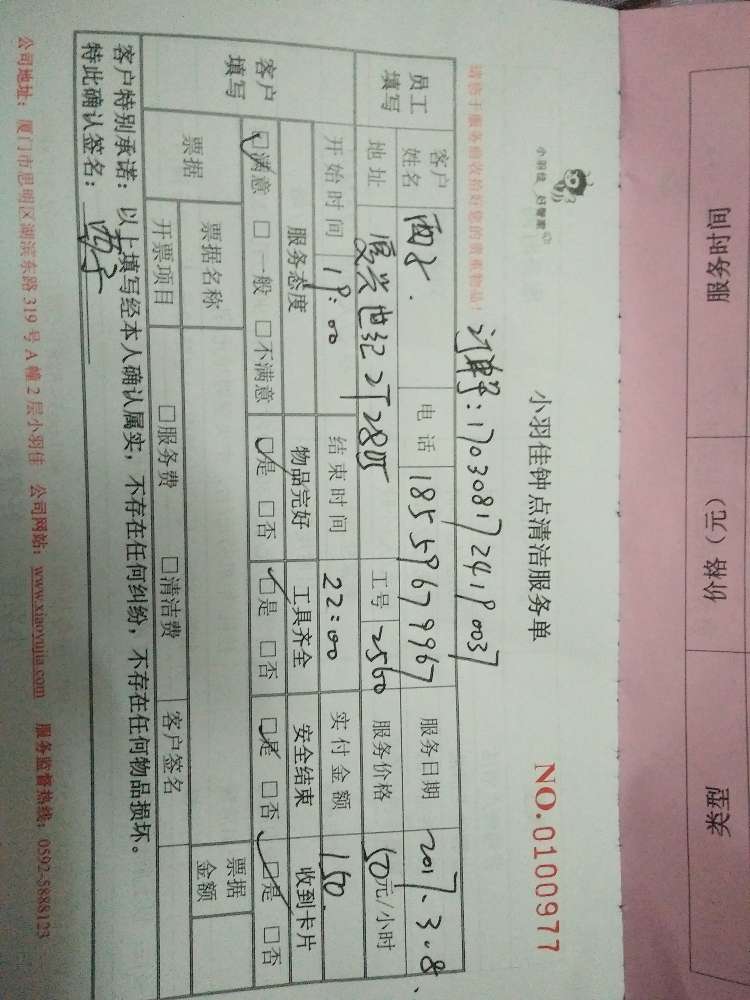 小羽佳 好管家
小羽佳钟点清洁服务单
NO.0100977
请您于服务前收拾好您的贵重物品!
员工填写
客户姓名
电话 18559679967
服务日期 2017.3.8
地址 复兴世纪2J28
工号 2560
服务价格 50元/小时
开始时间 19:00
结束时间 22:00
实付金额 150
客户填写
服务态度 物品完好 工具齐全 安全结束 收到卡片
☑满意 □一般 □不满意 ☑是 □否 ☑是 □否 ☑是 □否 ☑是 □否
票据
票据名称
票据金额
开票项目 □服务费 □清洁费 客户签名
客户特别承诺:以上填写经本人确认属实,不存在任何纠纷,不存在任何物品损坏。
特此确认签名:
公司地址:厦门市思明区湖滨东路319号A幢2层小羽佳 公司网站:www.xiaoyujia.com 服务监督热线:0592-5888123
服务时间
价格(元)
类型